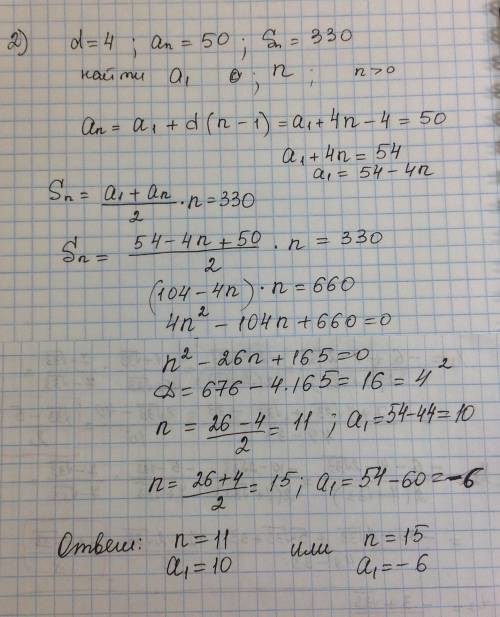 2) d=4 ; aₙ = 50 ; Sₙ = 330
найти a₁ ; n ; n>0
aₙ = a₁ + d (n-1) = a₁+4n-4 = 50
a₁ + 4n = 54
a₁ = 54 - 4n
Sₙ = (a₁ + aₙ)/2 · n = 330
Sₙ = (54 - 4n + 50)/2 · n = 330
(104 - 4n) · n = 660
4n² - 104n + 660 = 0
n² - 26n + 165 = 0
D = 676 - 4.165 = 16 = 4²
n = (26 - 4)/2 = 11 ; a₁ = 54-44 = 10
n = (26+4)/2 = 15 ; a₁ = 54 - 60 = -6
Ответ: n = 11 или n = 15
a₁ = 10 a₁ = -6